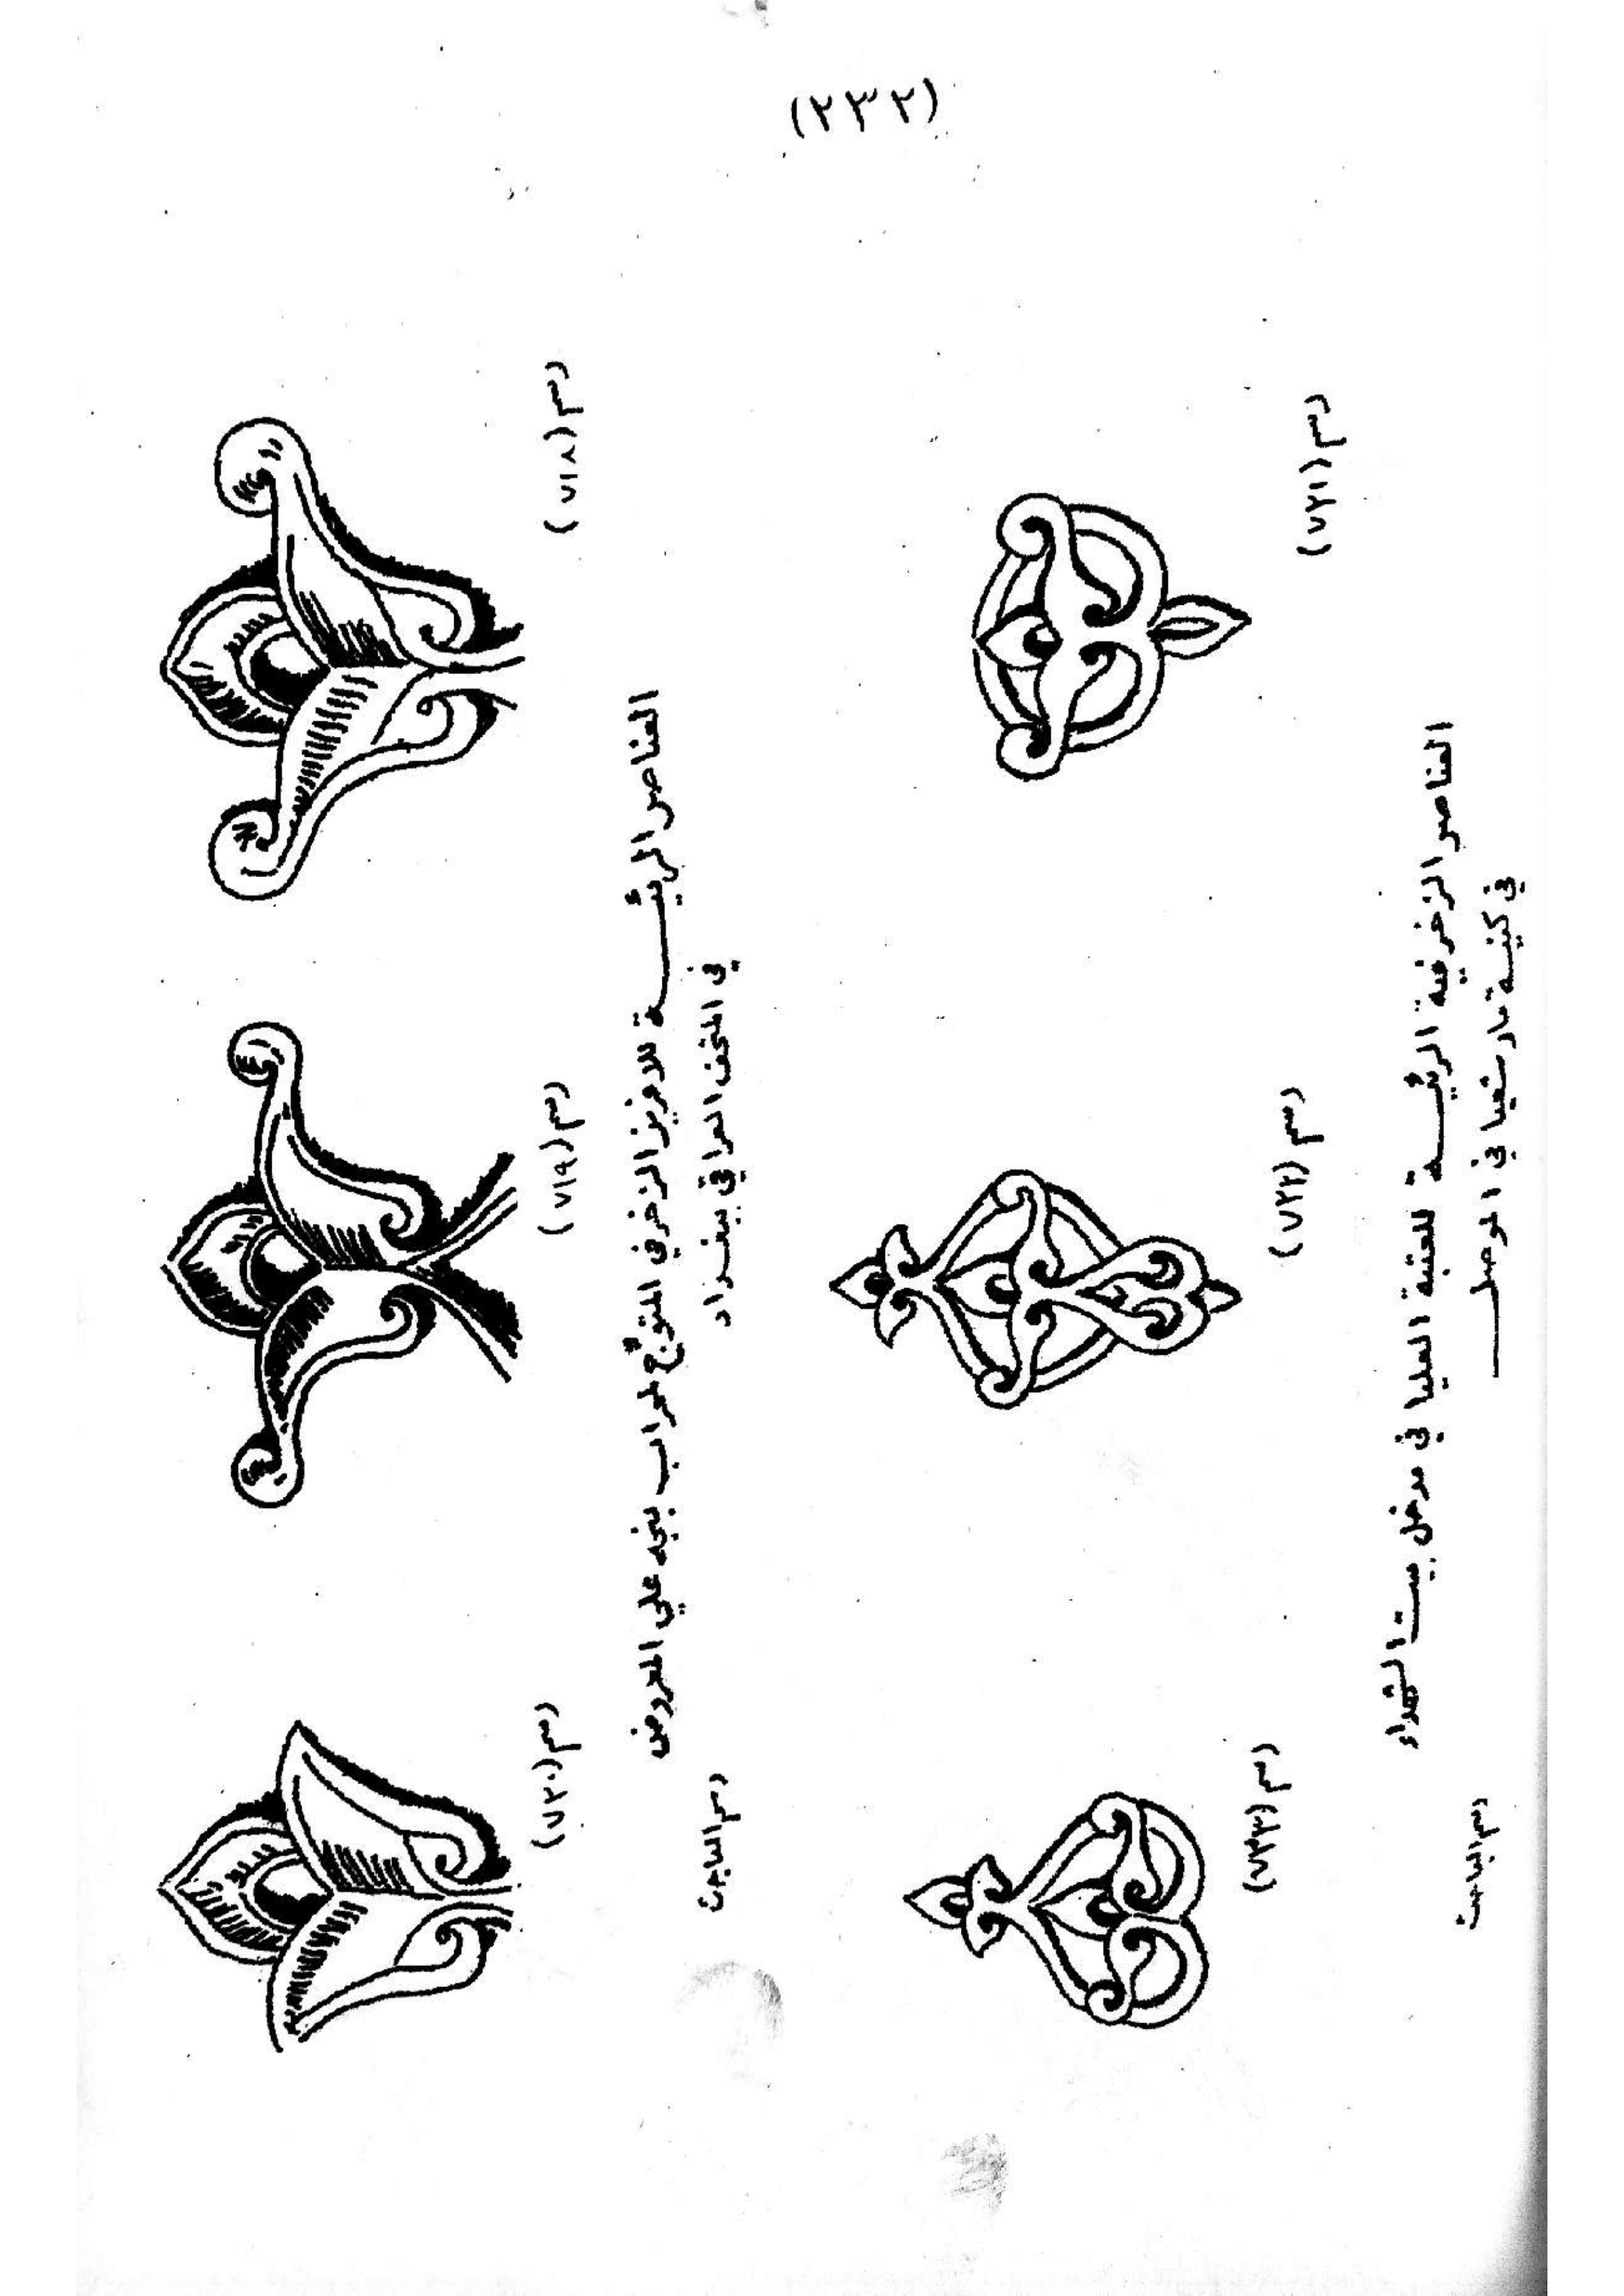 (٢٣٢)
رسم (٧١٨)
رسم (٧١٩)
رسم (٧٢٠)
العناصر الرئيسة للافريز الزخرفي المتوّج لمحراب بنجه علي المعروض
في المتحف العراقي ببغداد
رسم الباحث
رسم (٧٢١)
رسم (٧٢٢)
رسم (٧٢٣)
العناصر الزخرفية الرئيسة للعتبة العليا في مدخل بيت الشهداء
في كنيسة مار شعيا في الموصل
رسم الباحث